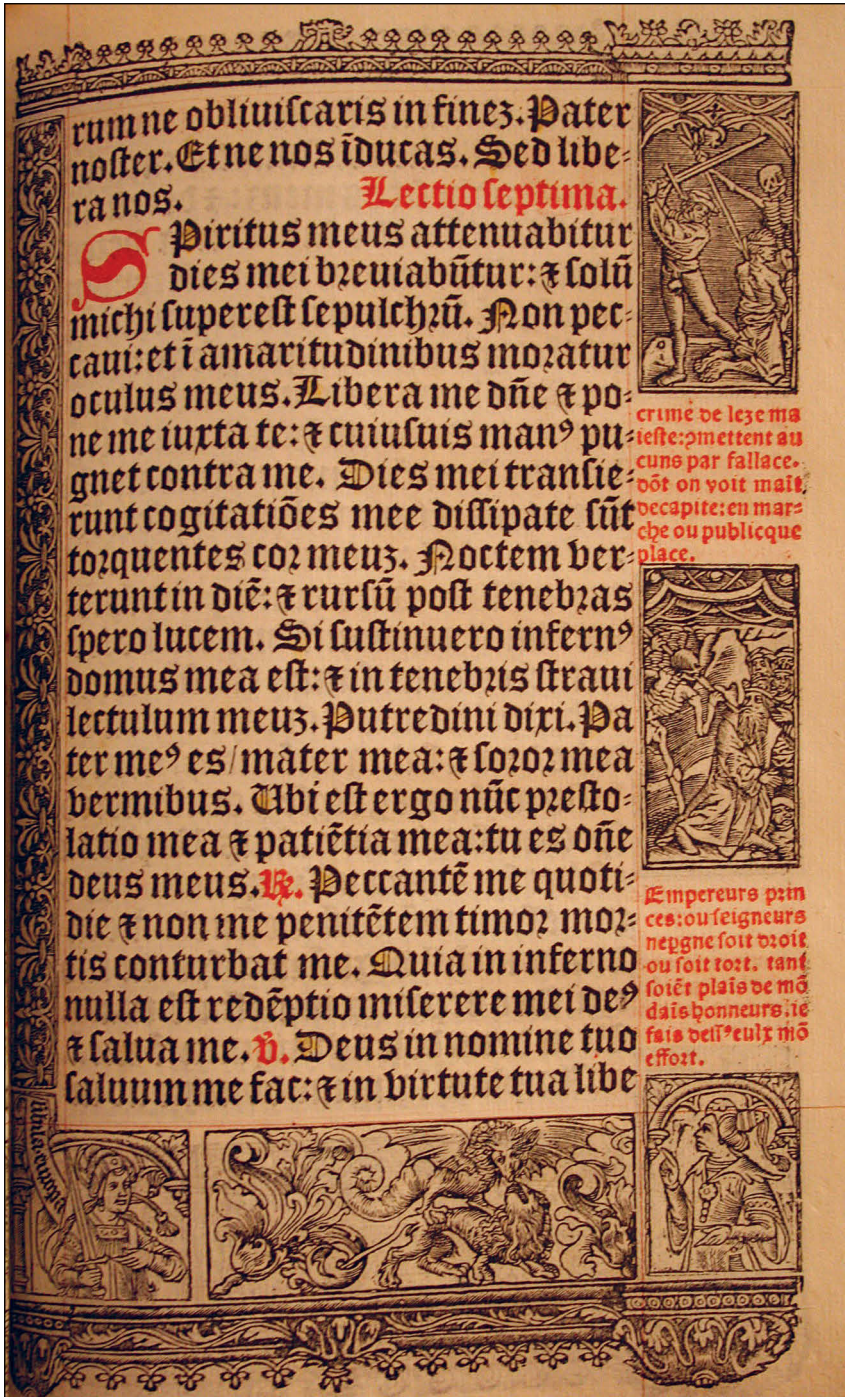 rum ne obliuiscaris in finez. Pater
noster. Et ne nos īducas. Sed libe⸗
ra nos. Lectio septima.
SPiritus meus attenuabitur
dies mei breuiabūtur: ⁊ solū
michi superest sepulchrū. Non pec⸗
caui: et ī amaritudinibus moratur
oculus meus. Libera me dn̄e ⁊ po⸗
ne me iuxta te: ⁊ cuiusuis manꝰ pu⸗
gnet contra me. Dies mei transie⸗
runt cogitatiōes mee dissipate sūt
torquentes cor meuz. Noctem ver⸗
terunt in diē: ⁊ rursū post tenebras
spero lucem. Si sustinuero infernꝰ
domus mea est: ⁊ in tenebris straui
lectulum meuz. Putredini dixi. Pa
ter meꝰ es/ mater mea: ⁊ soror mea
vermibus. Ubi est ergo nūc presto⸗
latio mea ⁊ patiētia mea: tu es dn̄e
deus meus. ℟. Peccantē me quoti⸗
die ⁊ non me penitētem timor mor⸗
tis conturbat me. Quia in inferno
nulla est redēptio miserere mei deꝰ
⁊ salua me. ℣. Deus in nomine tuo
saluum me fac: ⁊ in virtute tua libe
crime de leze ma
ieste: ꝯmettent au
cuns par fallace.
dōt on voit maīt
decapite: en mar⸗
che ou publicque
place.
Empereurs prin
ces: ou seigneurs
neꝑgne soit droit
ou soit tort. tant
soiēt plais de mō
dais honneurs. ie
fais dessꝰ eulx mō
effort.